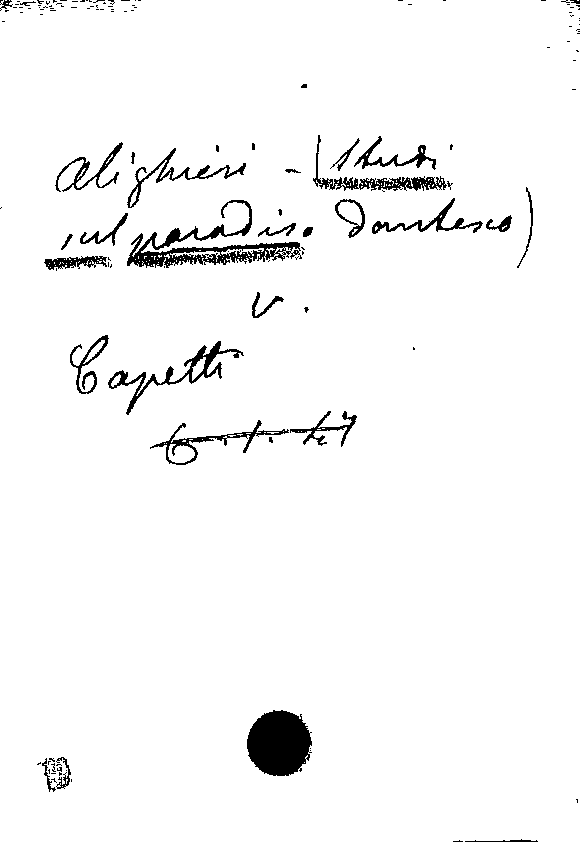 Alighieri - (Studi
sul paradiso Dantesco)
v.
Capetti